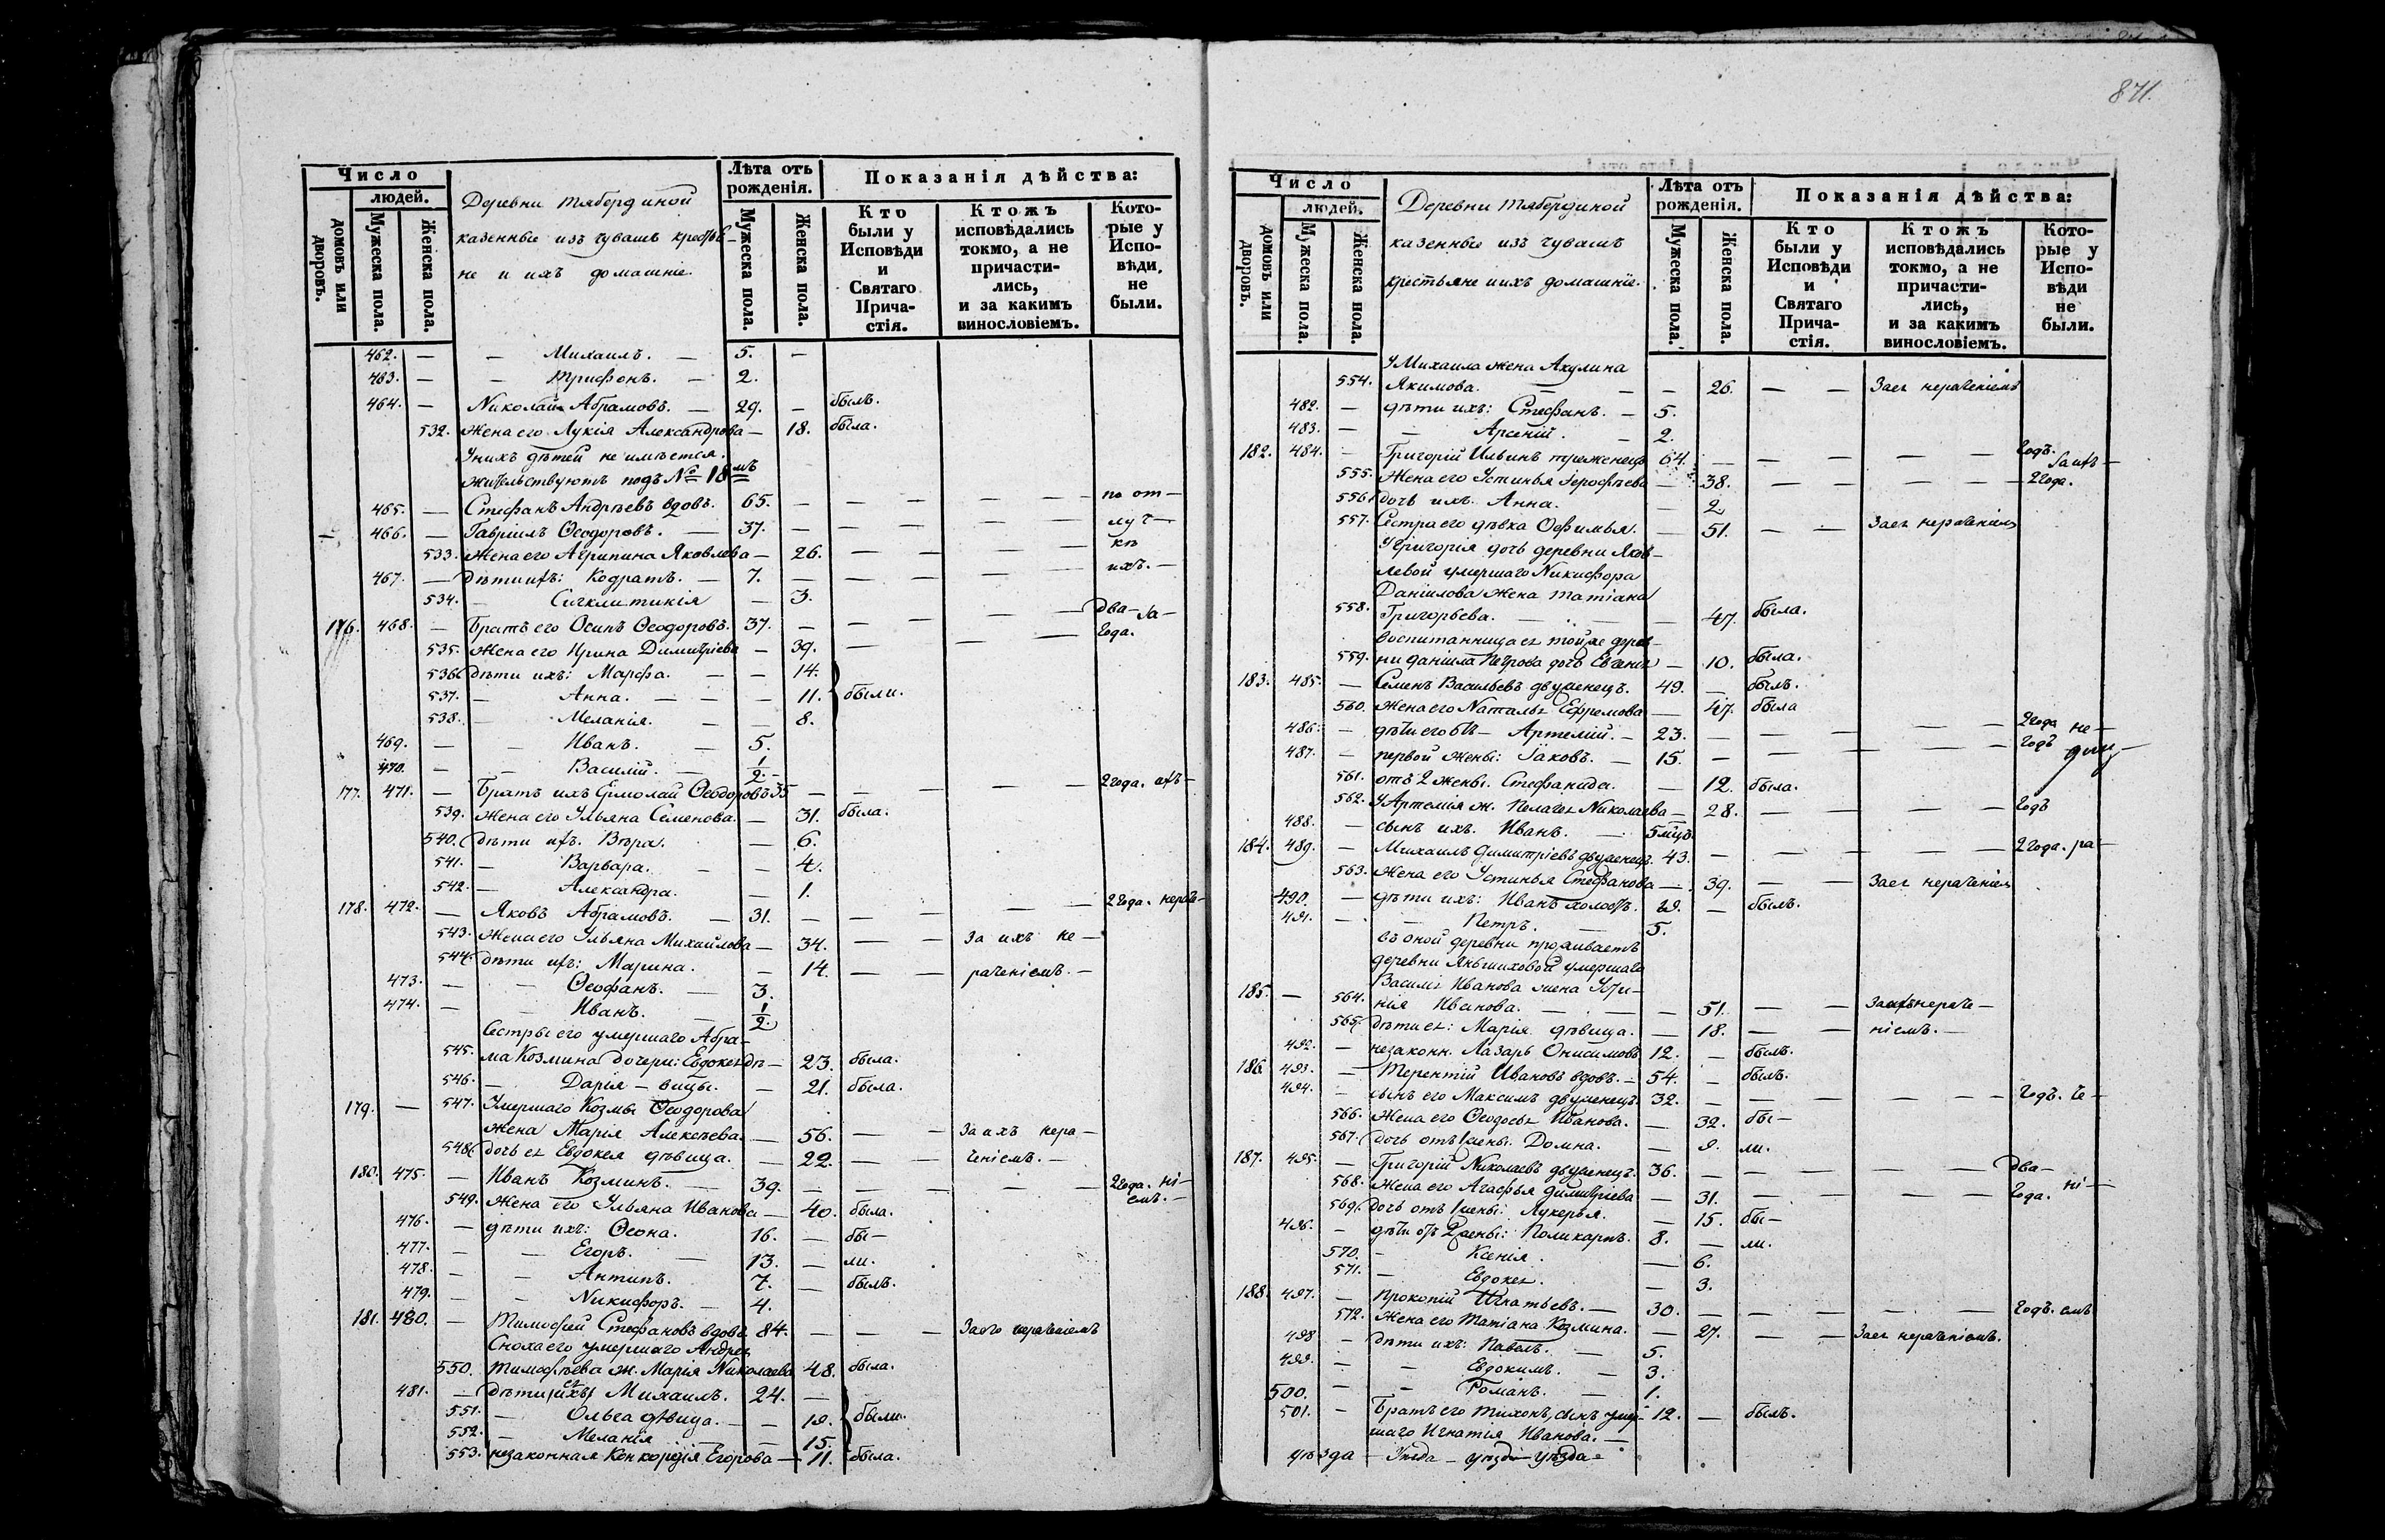 Число
людей.
домовъ или дворовъ.
Мужеска пола.
Женска пола.
Деревни Тябердиной
казенные изъ чувашъ крестья-
не и ихъ домашніе.
Лѣта отъ рожденія.
Мужеска пола.
Женска пола.
Показанія дѣйства:
Кто были у Исповѣди и Святаго Прича-стія.
Ктожъ исповѣдались токмо, а не причасти-лись, и за какимъ винословіемъ.
Кото-рые у Испо-вѣди не были.
462. — — Михаилъ. — 5. —
463. — — Трифонъ. — 2.
464. — Николай Абрамовъ. — 29. — былъ.
532. Жена его Лукія Александрова — 18. была.
У нихъ дѣтей не имѣется.
жительствуютъ подъ № 18мъ
465. — Стефанъ Андреевъ вдовъ. 65. — — — — — по от—
— 466. — Гавріилъ Ѳеодоровъ. — 37. — — — — — луч—
533. Жена его Агрипина Яковлева — 26. — — — — — кѣ
467. — дѣти ихъ: Кодратъ. — 7. — — — — — ихъ. —
534. — Сигклитикія — 3.
176. 468. — Братъ его Осипъ Ѳеодоровъ. 37. — — — — — Два — За —
535. Жена его Ирина Димитріева — 39. — — — года.
536. дѣти ихъ: Марфа. — — 14.
537. — Анна. — — — 11. были.
538. — Меланія. — — 8.
469. — — Иванъ. — 5.
470. — — Василій. — 1/2. —
177. 471. — Братъ ихъ Ермолай Ѳеодоровъ 35 — — — — — 2 года. ихъ —
539. Жена его Ульяна Семенова. — 31. была.
540. дѣти ихъ. Вѣра. — 6.
541. — Варвара. — — 4.
542. — Александра. — 1.
178. 472. — Яковъ Абрамовъ. — 31. — — — — — 2 года. нераче—
543. Жена его Ульяна Михайлова — 34. — — За ихъ не —
544. дѣти ихъ: Марина. — 14. — — раченіемъ. —
473. — — Ѳеофанъ. — 3.
474. — — Иванъ. — 1/2.
Сестры его умершаго Абра—
545. ма Козмина дочери: Евдокея дѣ — 23. была.
546. — Дарія — вицы. — 21. была.
179. — 547. Умершаго Козмы Ѳеодорова
жена Марія Алексѣева. — 56. — — За ихъ нера —
548. дочь ея Евдокея дѣвица. — 22. — — ченіемъ. —
180. 475. — Иванъ Козминъ. — 39. — — — — — 2 года. ні—
549. Жена его Ульяна Иванова — 40. была. емъ. —
476. — дѣти ихъ: Ѳеона. 16. — бы—
477. — — Егоръ. — 13. — ли.
478. — — Антипъ. 7. — былъ.
479. — — Никифоръ. — 4.
181. 480. — Тимофей Стефановъ вдовъ 84. — — — За его нераченіемъ
Сноха его умершаго Андрея
550. Тимофѣева ж. Марія Николаева 48. была.
481. — дѣти (ихъ) ея Михаилъ. 24. —
551. — Ольга дѣвица. — — 19. были.
552. — Меланія — — 15.
553. незаконная Конкордія Егорова — 11. была.
871.
Число
людей.
домовъ или дворовъ.
Мужеска пола.
Женска пола.
Деревни Тябердиной
казенные изъ чувашъ
крестьяне и ихъ домашніе.
Лѣта отъ рожденія.
Мужеска пола.
Женска пола.
Показанія дѣйства:
Кто были у Исповѣди и Святаго Прича-стія.
Ктожъ исповѣдались токмо, а не причасти-лись, и за какимъ винословіемъ.
Кото-рые у Испо-вѣди не были.
У Михаила жена Акулина
554. Якимова. — — — 26. — — За ея нераченіемъ
482. — дѣти ихъ: Стефанъ. — 5.
483. — — Арсеній. — 2.
182. 484. — Григорій Ильинъ треженецъ 64. — — — — — Годъ. За ихъ —
555. Жена его Устинья Іерофѣева — 38. — — — — — 2 года.
556. дочь ихъ. Анна. — 2.
557. Сестра его дѣвка Офимья. — 51. — — За ея нераченіем
У Григорія дочь деревни Яков—
левой умершаго Никифора
Даніилова жена Татіана
558. Григорьева. — — — 47. была.
воспитанница ея той же дерев—
559. ни Даніила Петрова дочь Евгенія — 10. была.
183. 485. — Семенъ Васильевъ двуженецъ. 49. — былъ.
560. Жена его Наталья Ефремова — 47. была
486. — дѣти его отъ — Артемій. — 23. — — — — — 2 года не —
487. — первой жены: Іаковъ. — 15. — — — — — Годъ
561. отъ 2 жены. Стефанида. — 12. была.
562. У Артемія ж. Пелагея Николаева — 28. — — — — Годъ
488. — сынъ ихъ. Иванъ. — 5 мцъ.
184. 489. — Михаилъ Димитріевъ двуженецъ. 43. — — — — — 2 года. ра —
563. Жена его Устинья Стефанова — 39. — — За ея нераченіем
490. — дѣти ихъ: Иванъ холостъ. 19. — былъ.
491. — — Петръ. — 5.
въ оной деревни проживаетъ
деревни Яншиховой умершаго
Василія Иванова жена Усти—
185. — 564. нія Иванова. — — — 51. — — За ихъ нераче —
565. дѣти ея: Марія дѣвица. — 18. — — ніемъ. —
492. — незаконн. Лазарь Онисимовъ 12. — былъ.
186. 493. — Терентій Ивановъ вдовъ. — 54. — былъ.
494. — сынъ его Максимъ двуженецъ. 32. — — — — — Годъ. че —
566. Жена его Ѳеодосья Иванова. — 32. бы —
567. дочь отъ 1 жены: Домна. — 9. ли.
187. 495. — Григорій Николаевъ двуженецъ. 36. — — — — — Два —
568. Жена его Агафья Димитріева — 31. — — — — Года. ні —
569. дочь отъ 1 жены: Лукерья. — 15. бы —
496. — дѣти отъ 2 жены: Поликарпъ. 8. — ли.
570. — Ксенія. — 6.
571. — Евдокея. — 3.
188. 497. — Прокопій Игнатьевъ. — 30. — — — — — Годъ. емъ
572. Жена его Татіана Козмина. — 27. — — За ея нераченіемъ.
498 — дѣти ихъ: Павелъ. — 5.
499. — — Евдокимъ. — 3.
500. — — Романъ. — 1.
501. — Братъ его Тихонъ, сынъ умер— 12. — былъ.
шаго Игнатія Иванова. —
уѣзда — Уѣзда — уѣзда — уѣзда